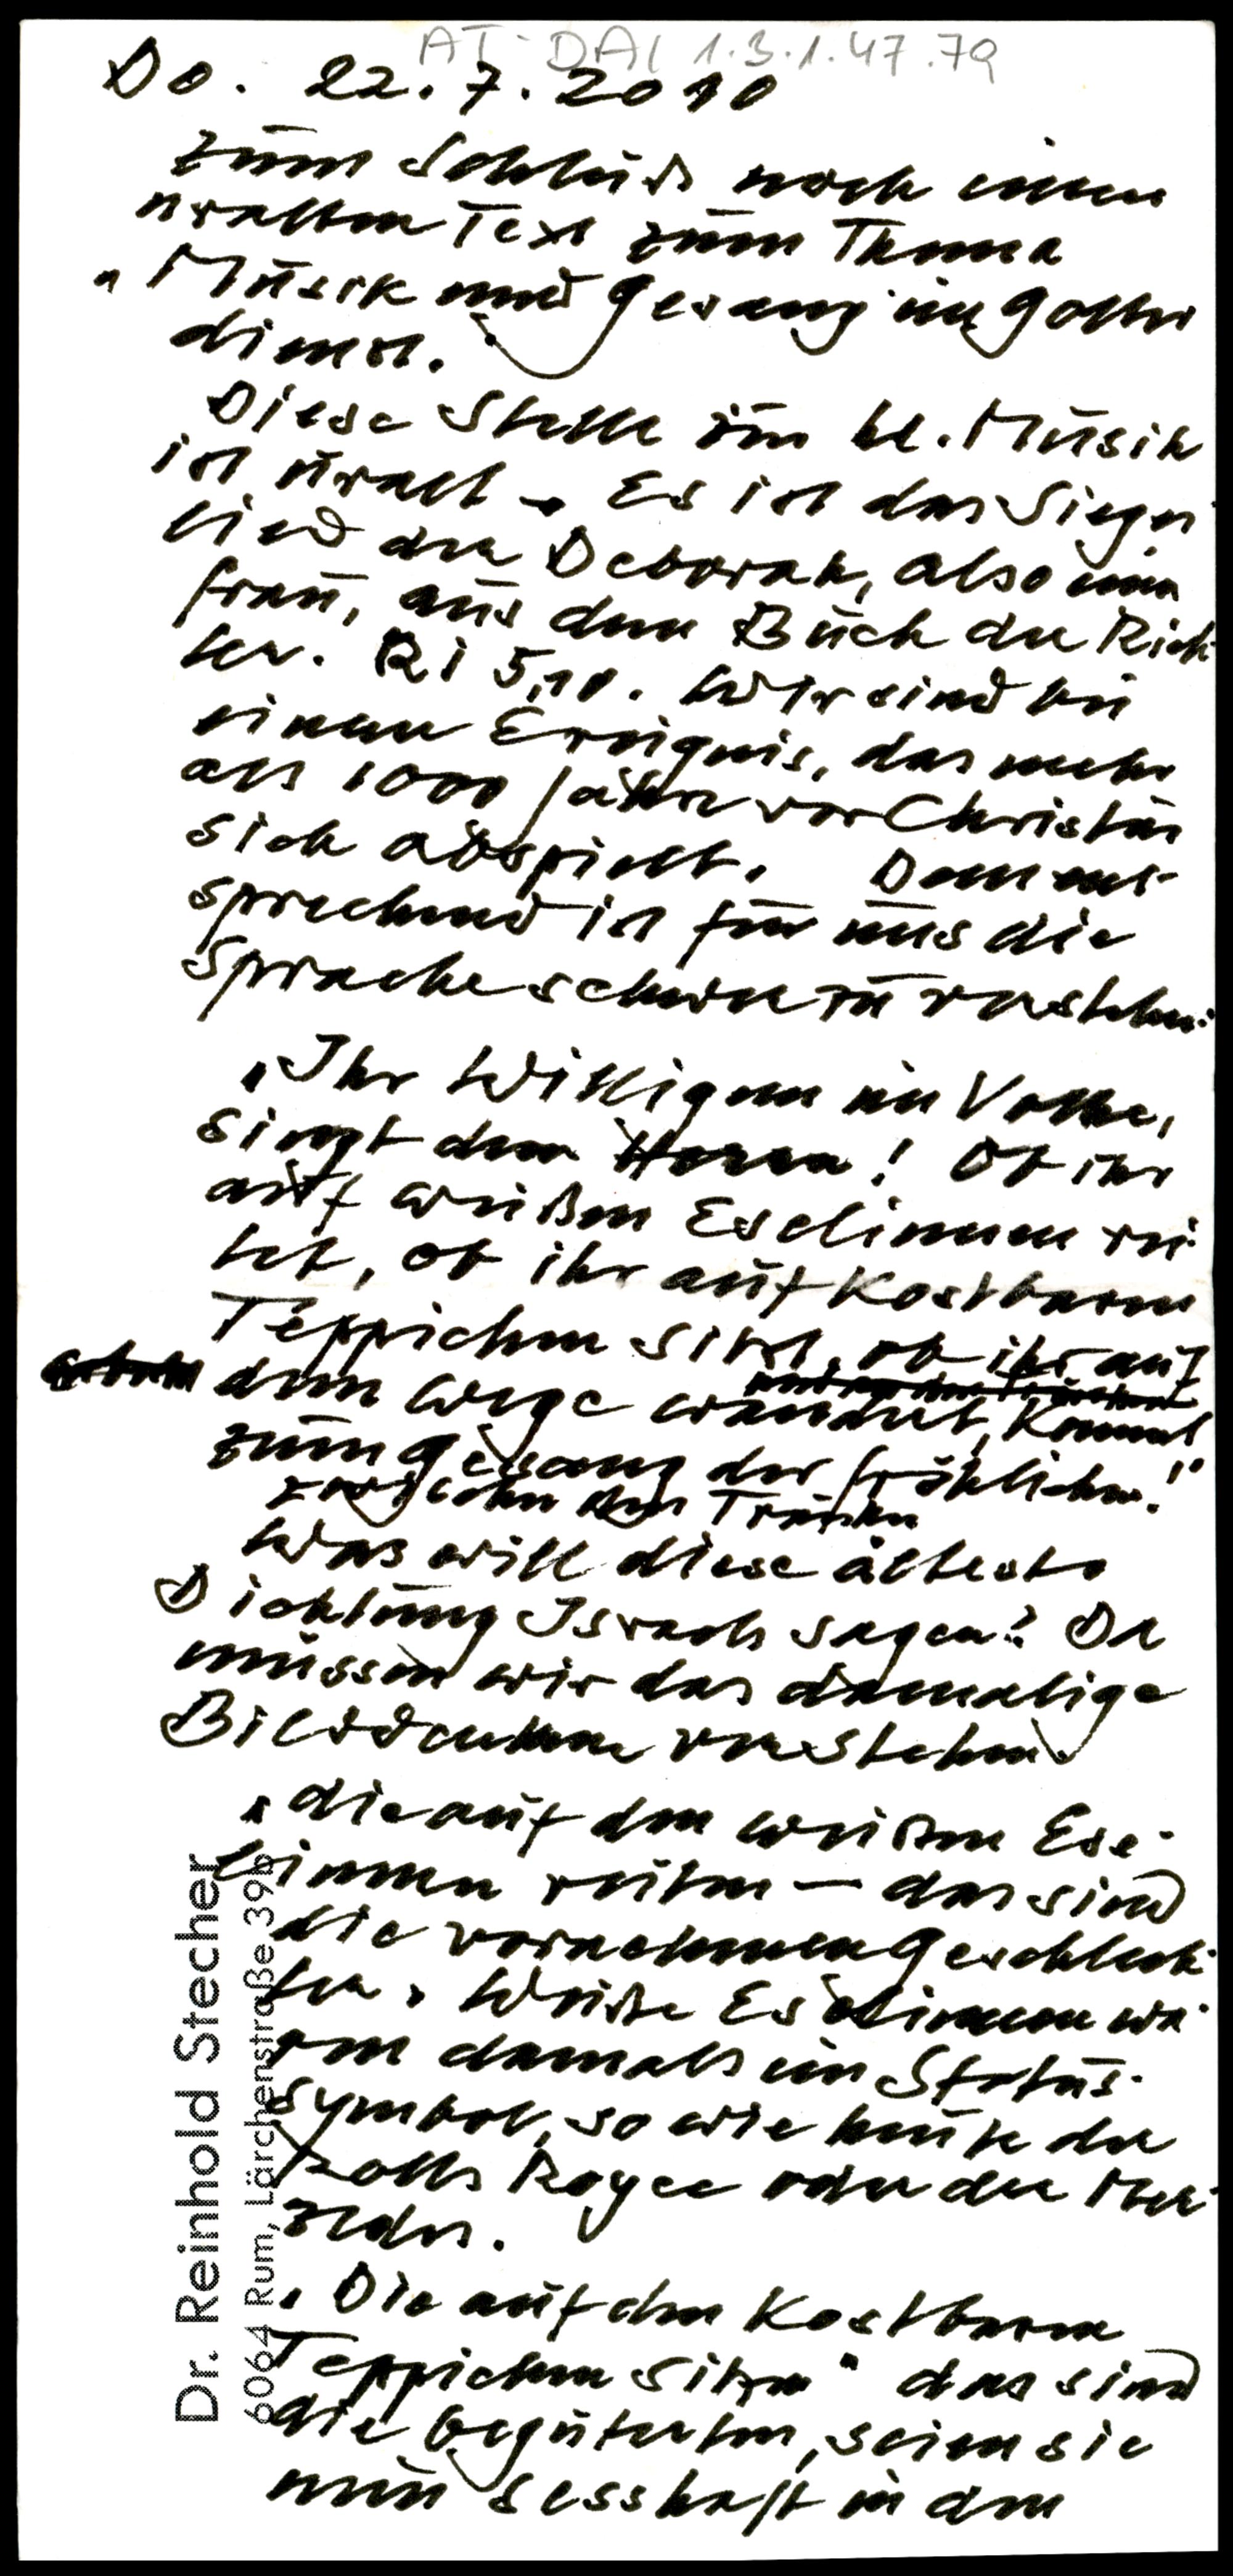 AT-DAI 1.3.1.47.79
Do. 22.7.2010
Zum Schluß noch einen
uralten Text zum Thema
„Musik und Gesang im Gottes
dienst.
Diese Stelle zur hl. Musik
ist uralt. Es ist das Sieges
lied der Deborah, also einer
Frau, aus dem Buch der Rich
ter. Ri 5,10. Wir sind bei
einem Ereignis, das mehr
als 1000 Jahre vor Christus
sich abspielt. Dement-
sprechend ist für uns die
Sprache schwer zu verstehen:
„Ihr Willigen im Volke,
singt dem Herrn! Ob ihr
auf weißen Eselinnen rei-
tet, ob ihr auf kostbaren
Teppichen sitzt, ob ihr auf
dem Wege wandert, kommt
zum Gesang der Fröhlichen!"
zwischen den Tränken
Was will diese älteste
Dichtung Israels sagen? Da
müssen wir das damalige
Bilddenken verstehen
„die auf den weißen Ese-
linnen reiten — das sind
die vornehmen Geschlech-
ter. Weiße Eselinnen wa-
ren damals ein Status-
symbol, so wie heute der
Rolls Royce oder der Mer-
zedes.
„Die auf den kostbaren
Teppichen sitzen" das sind
die begüterten, seien sie
nun sesshaft in den
Dr. Reinhold Stecher
6064 Rum, Lärchenstraße 39b